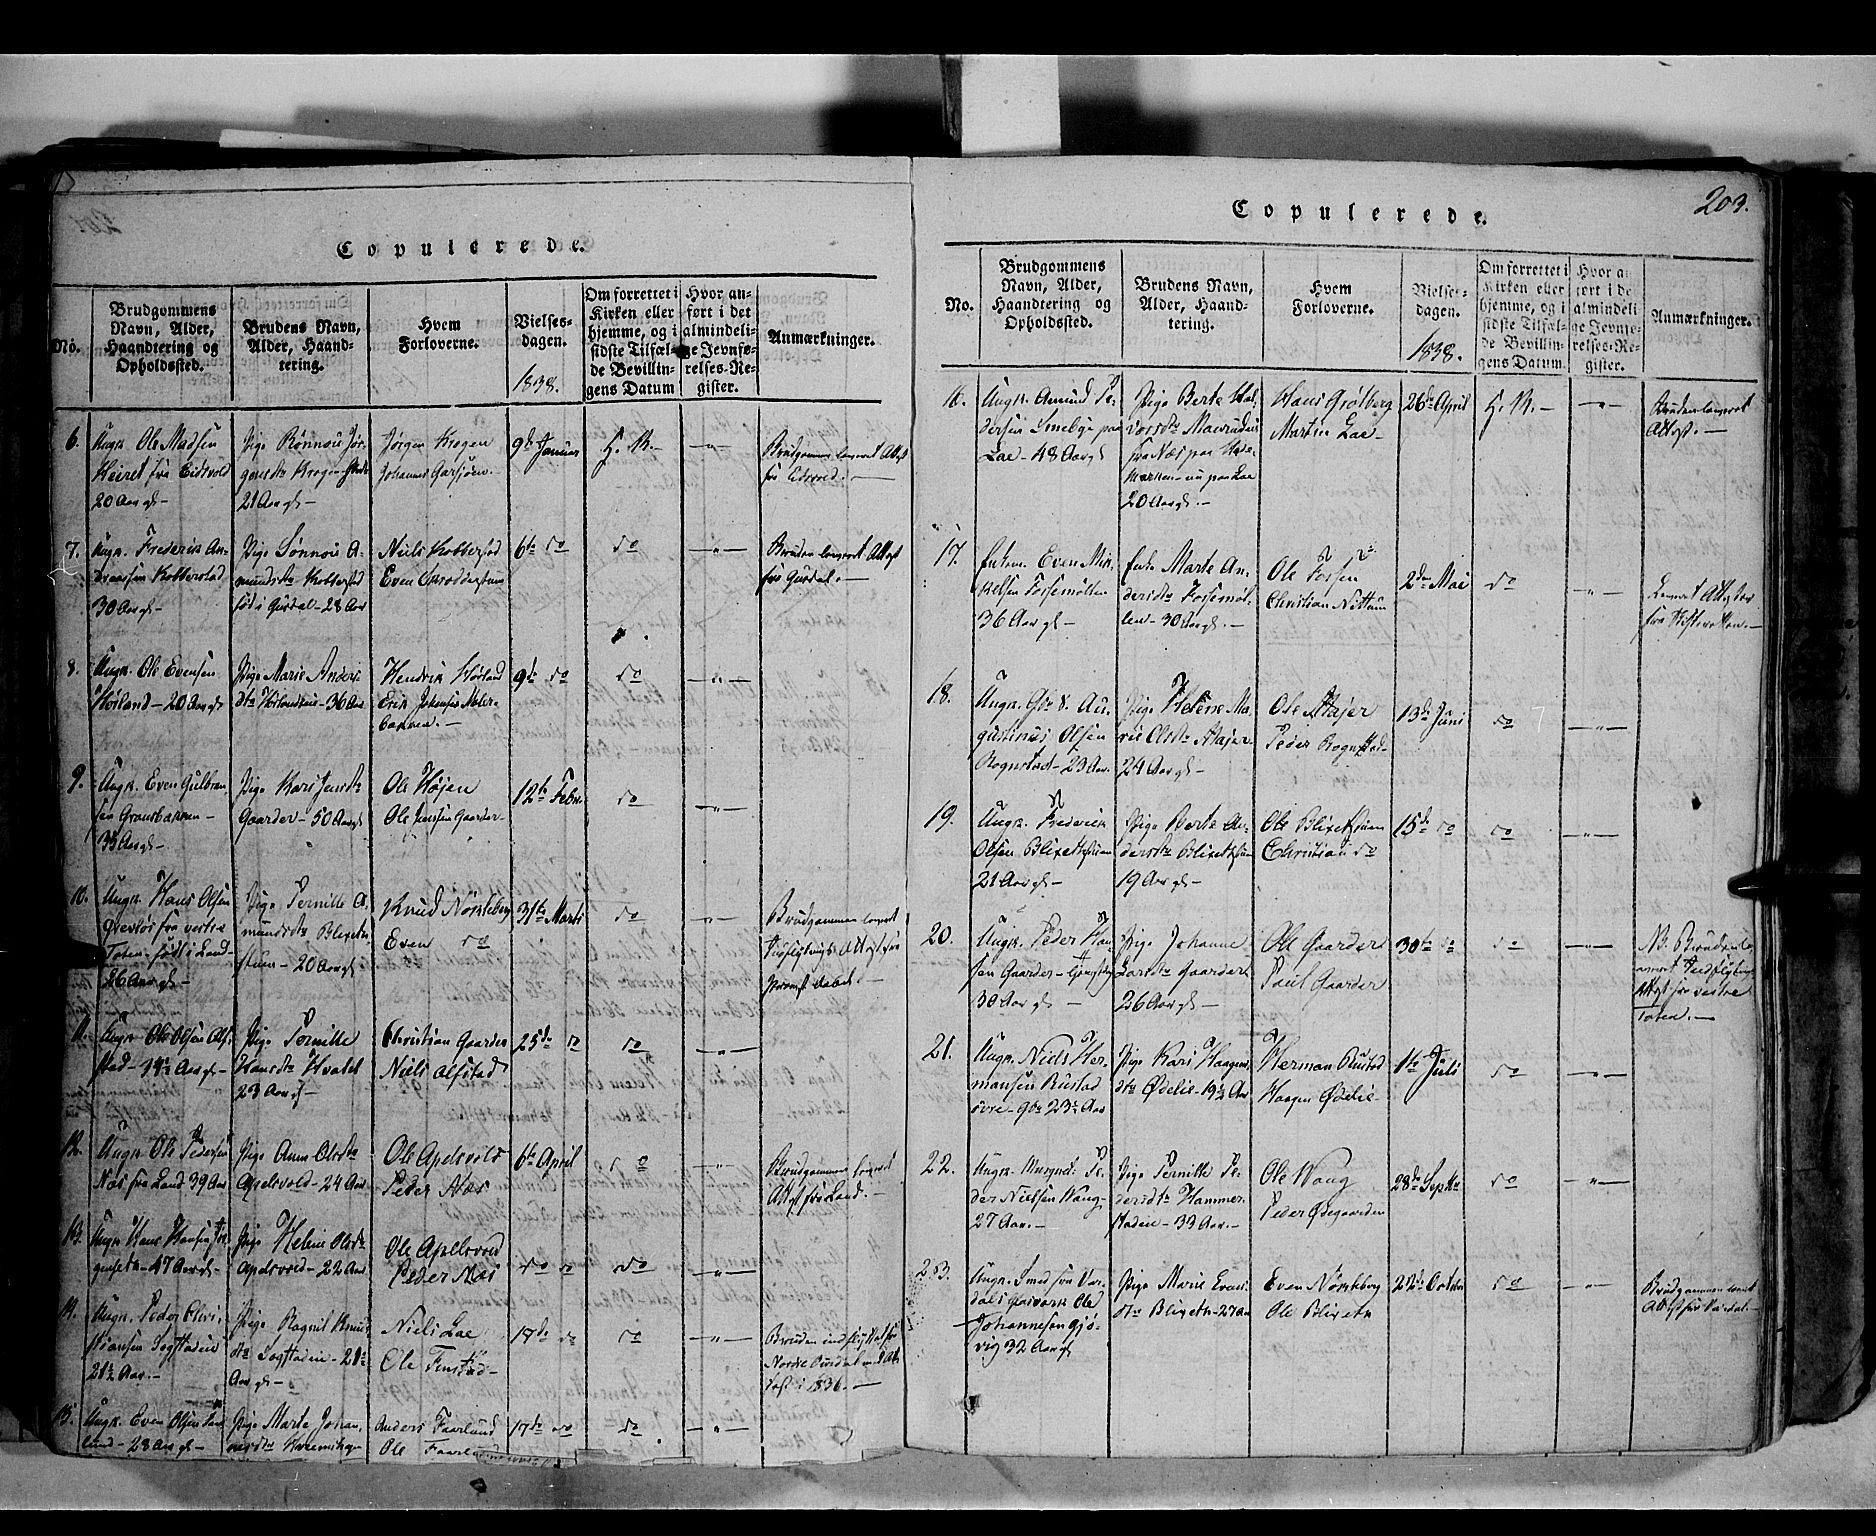 Copulerede.
No.
Brudgommens
Navn, Alder,
Haandtering og
Opholdssted.
Brudens Navn,
Alder, Haand-
tering.
Hvem
Forloverne.
Vielses-
dagen.
1838.
Om forrettet i
Kirken eller
hjemme, og i
sidste Tilfæl-
de Bevillin-
gens Datum
Hvor an-
ført i det
almindeli-
ge Jevnfø-
relses-Re-
gister.
Anmærkninger.
6.
Ungk. Ole Madsen
Heiret fra Eidsvold
20 Aar gl.
Pige Rønnou Jør-
gensdtr Krogen
21 Aar gl.
Jørgen Krogen
Johannes
9de Januar
H. K.
Brudgommen leveret Attest
fra Eidsvold.
7.
Ungk. Frederik An-
dreasen Kobberstad
30 Aar gl.
Pige Sønnou A-
mundsdtr Kobberstad
fød i Gusdal - 28 Aar
Niels Kobberstad
Even
6te do
do
Bruden leveret Attest
fra Gusdal.
8.
Ungk. Ole Evensen
Hørland - 20 Aar gl.
Pige Marie Anders
dtr - 36 Aar
Hendrik Hørland
Erik Johansen
9de do
do
9.
Ungk. Even Gulbran
sen Gransbakken
33 Aar gl.
Pige Kari Jensdtr
Gaarder - 50 Aar gl.
Ole Højen
Ole Jensen Gaarder
12te Febr.
do
10.
Ungk. Hans Olsen
fra vestre
Toten født i Land
26 Aar gl.
Pige Pernille A-
mundsdtr Blixeth
stuen - 20 Aar gl.
Knud Nørsteberg
Even do
31te Marts
do
Brudgommen leveret
11.
Ungk. Ole Olsen Alf-
stad
Pige Pernille
Hansdtr
23 Aar gl.
Christian Gaarder
Niels Alfstad
25de do
do
12.
Ungk. Ole Pedersen
Næs fra Land 39 Aar
Pige Anne Olsdtr
Apelsvold - 24 Aar
Ole Apelsvold
Peder Næs
6te April
do
Brudgommen leveret
Attest fra Land.
13.
Ungk. Hans Hansen
47 Aar gl.
Pige Helene Olsdtr
Apelsvold - 22 Aar
Ole Apelsvold
Peder Næs
do do
do
14.
Ungk. Peder Chri-
stiansen Sogstadeie
21½ Aar
Pige Ragnil Knuds
dtr Sogstadeie
Aar gl.
Niels Lae
Ole Finstad
17de do
do
Bruden indflyttet fra
Nordre Aurdal med At-
test i 1836.
15.
Ungk. Even Olsen
28 Aar gl.
Pige Marte Johan-
nesdtr
Anders Faarlund
Ole Faarlund
17de do
do
203.
Copulerede.
No.
Brudgommens
Navn, Alder,
Haandtering og
Opholdssted.
Brudens Navn,
Alder, Haand-
tering.
Hvem
Forloverne.
Vielses-
dagen.
1838.
Om forrettet i
Kirken eller
hjemme, og i
sidste Tilfæl-
de Bevillin-
gens Datum.
Hvor an-
ført i de
almindeli
ge Jevnfø-
relses-Re-
gister.
Anmærkninger.
16.
Ungk. Amund Pe-
dersen Smebye paa
Lae - 48 Aar gl
Pige Berte Hal-
vorsdtr
fra Næs paa Hede-
marken - nu paa Lae
20 Aar gl.
Hans Grøtberg
Martin Lae
26de April
H. K.
Bruden leveret
Attest.
17.
Enkem. Even Mik-
kelsen Fossemøllen
36 Aar gl
Enke Marte An-
dersdtr Fossemøl-
len - 30 Aar gl.
Ole Fossen
Christian Nettum
2den Mai
do
Leveret Attester
fra Skifteretten.
18.
Ungk. Gbr S. Au-
gustinus Olsen
Rognstad - 23 Aar
Pige Helene Ma-
rie Olsdtr Majer
24 Aar gl.
Ole Majer
Peder Rognstad
13de Juni
do
19.
Ungk. Frederik
Olsen Blixethstuen
21 Aar gl
Pige Berte An-
dersdtr Blixethstuen
19 Aar gl.
Ole Blixethstuen
Christian do
15de do
do
20.
Ungk. Peder Han
sen Gaarder
30 Aar gl
Pige Johanne
Larsdtr Gaarder
26 Aar gl.
Ole Gaarder
Paul Gaarder
30te do
do
NB. Bruden l-
everet Indflytnings
Attest fra vestre
Toten.
21.
Ungk. Niels Her-
mansen Rustad
øvre - 23½ Aar
Pige Kari Haagens
dtr Ødelie - 19½ Aar
Herman Rustad
Haagen Ødelie
1te Juli
do
22.
Ungk. Pe-
der Nielsen Vang
27 Aar.
Pige Pernille Pe-
dersdtr Hammer-
stadeie - 33 Aar.
Ole Vang
Peder Ødegaarden
28de Septbr
do
23.
Ungk. Smed fra Var-
dals Glasværk Ole
Johannesen Gjø-
vig 32 Aar gl
Pige Marie Evens
dtr Blixeth - 27 Aar
Even Nørsteberg
Ole Blixeth
22de October
do
Brudgommen leveret
Attest fra Vardal.